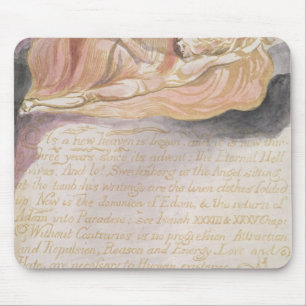 As a new heaven is begun, and it is now thir-
-ty three years since its advent: the Eternal Hell
revives. And lo! Swedenborg is the Angel sitting
at the tomb: his writings are the linen clothes folded
up. Now is the dominion of Edom, & the return of
Adam into Paradise; see Isaiah XXXIV & XXXV Chap:
Without Contraries is no progression. Attraction
and Repulsion, Reason and Energy, Love and
Hate, are necessary to Human existence.